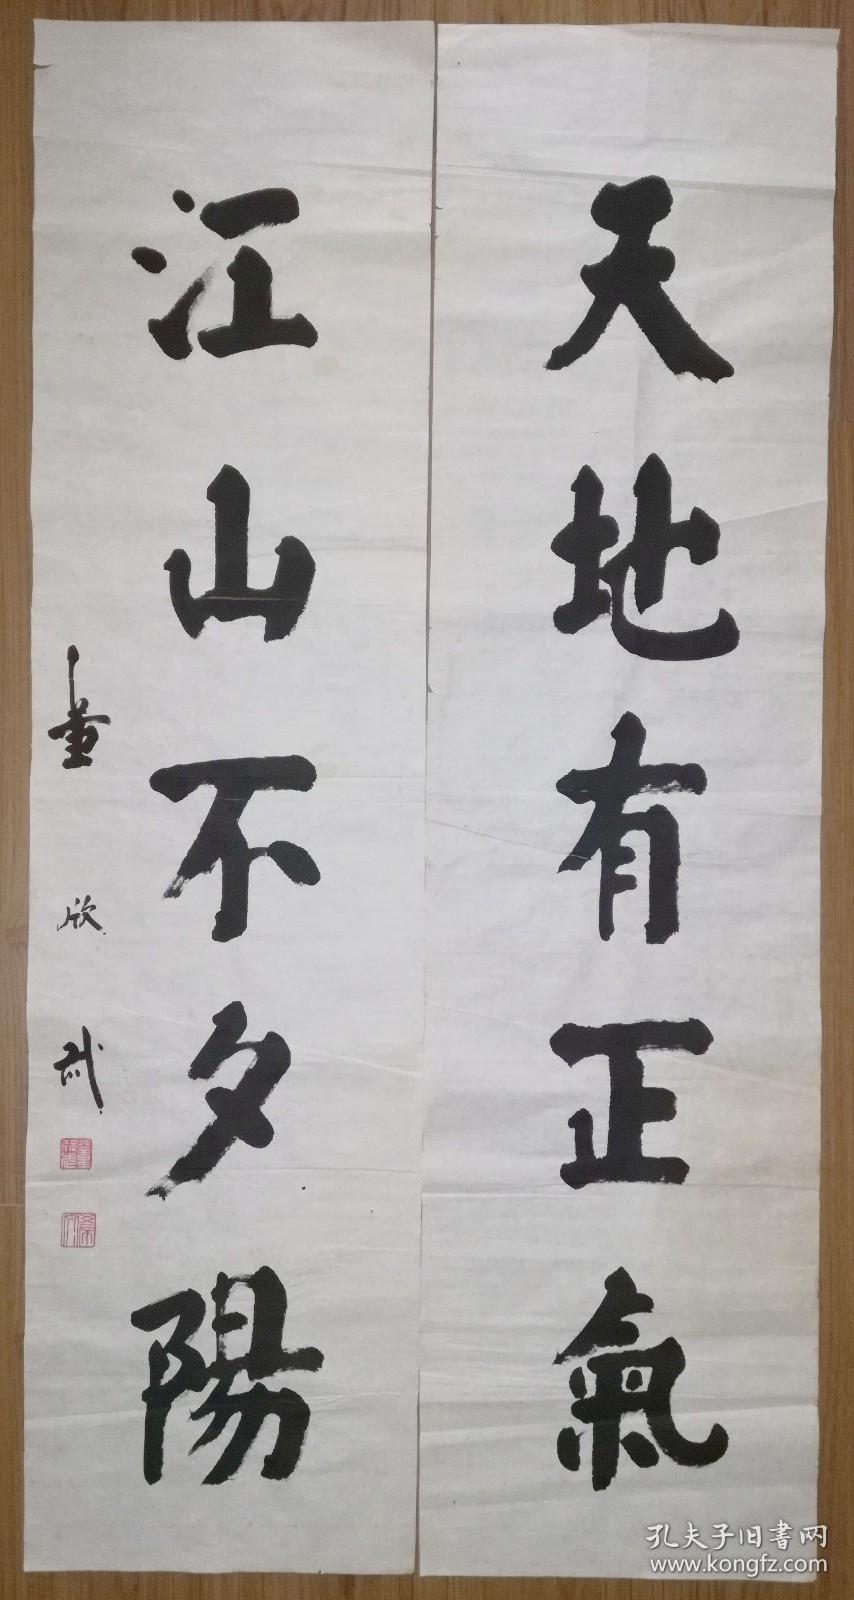 天地有正氣
江山不夕陽
董欣武
孔夫子旧書网
www.kongfz.com